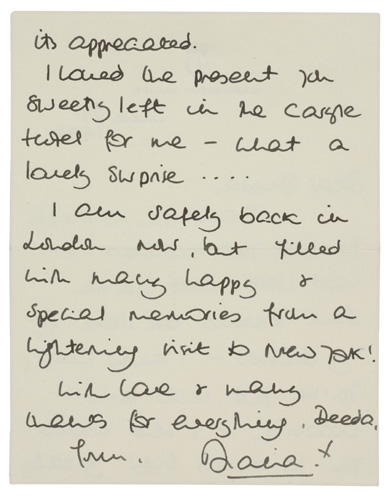 its appreciated.
I loved the present you
sweetly left in the Carlyle
Hotel for me – what a
lovely surprise ....
I am safely back in
London now, but filled
with many happy &
special memories from a
lightening visit to New York!
With love & many
thanks for everything, Deeda,
from.
Diana. x